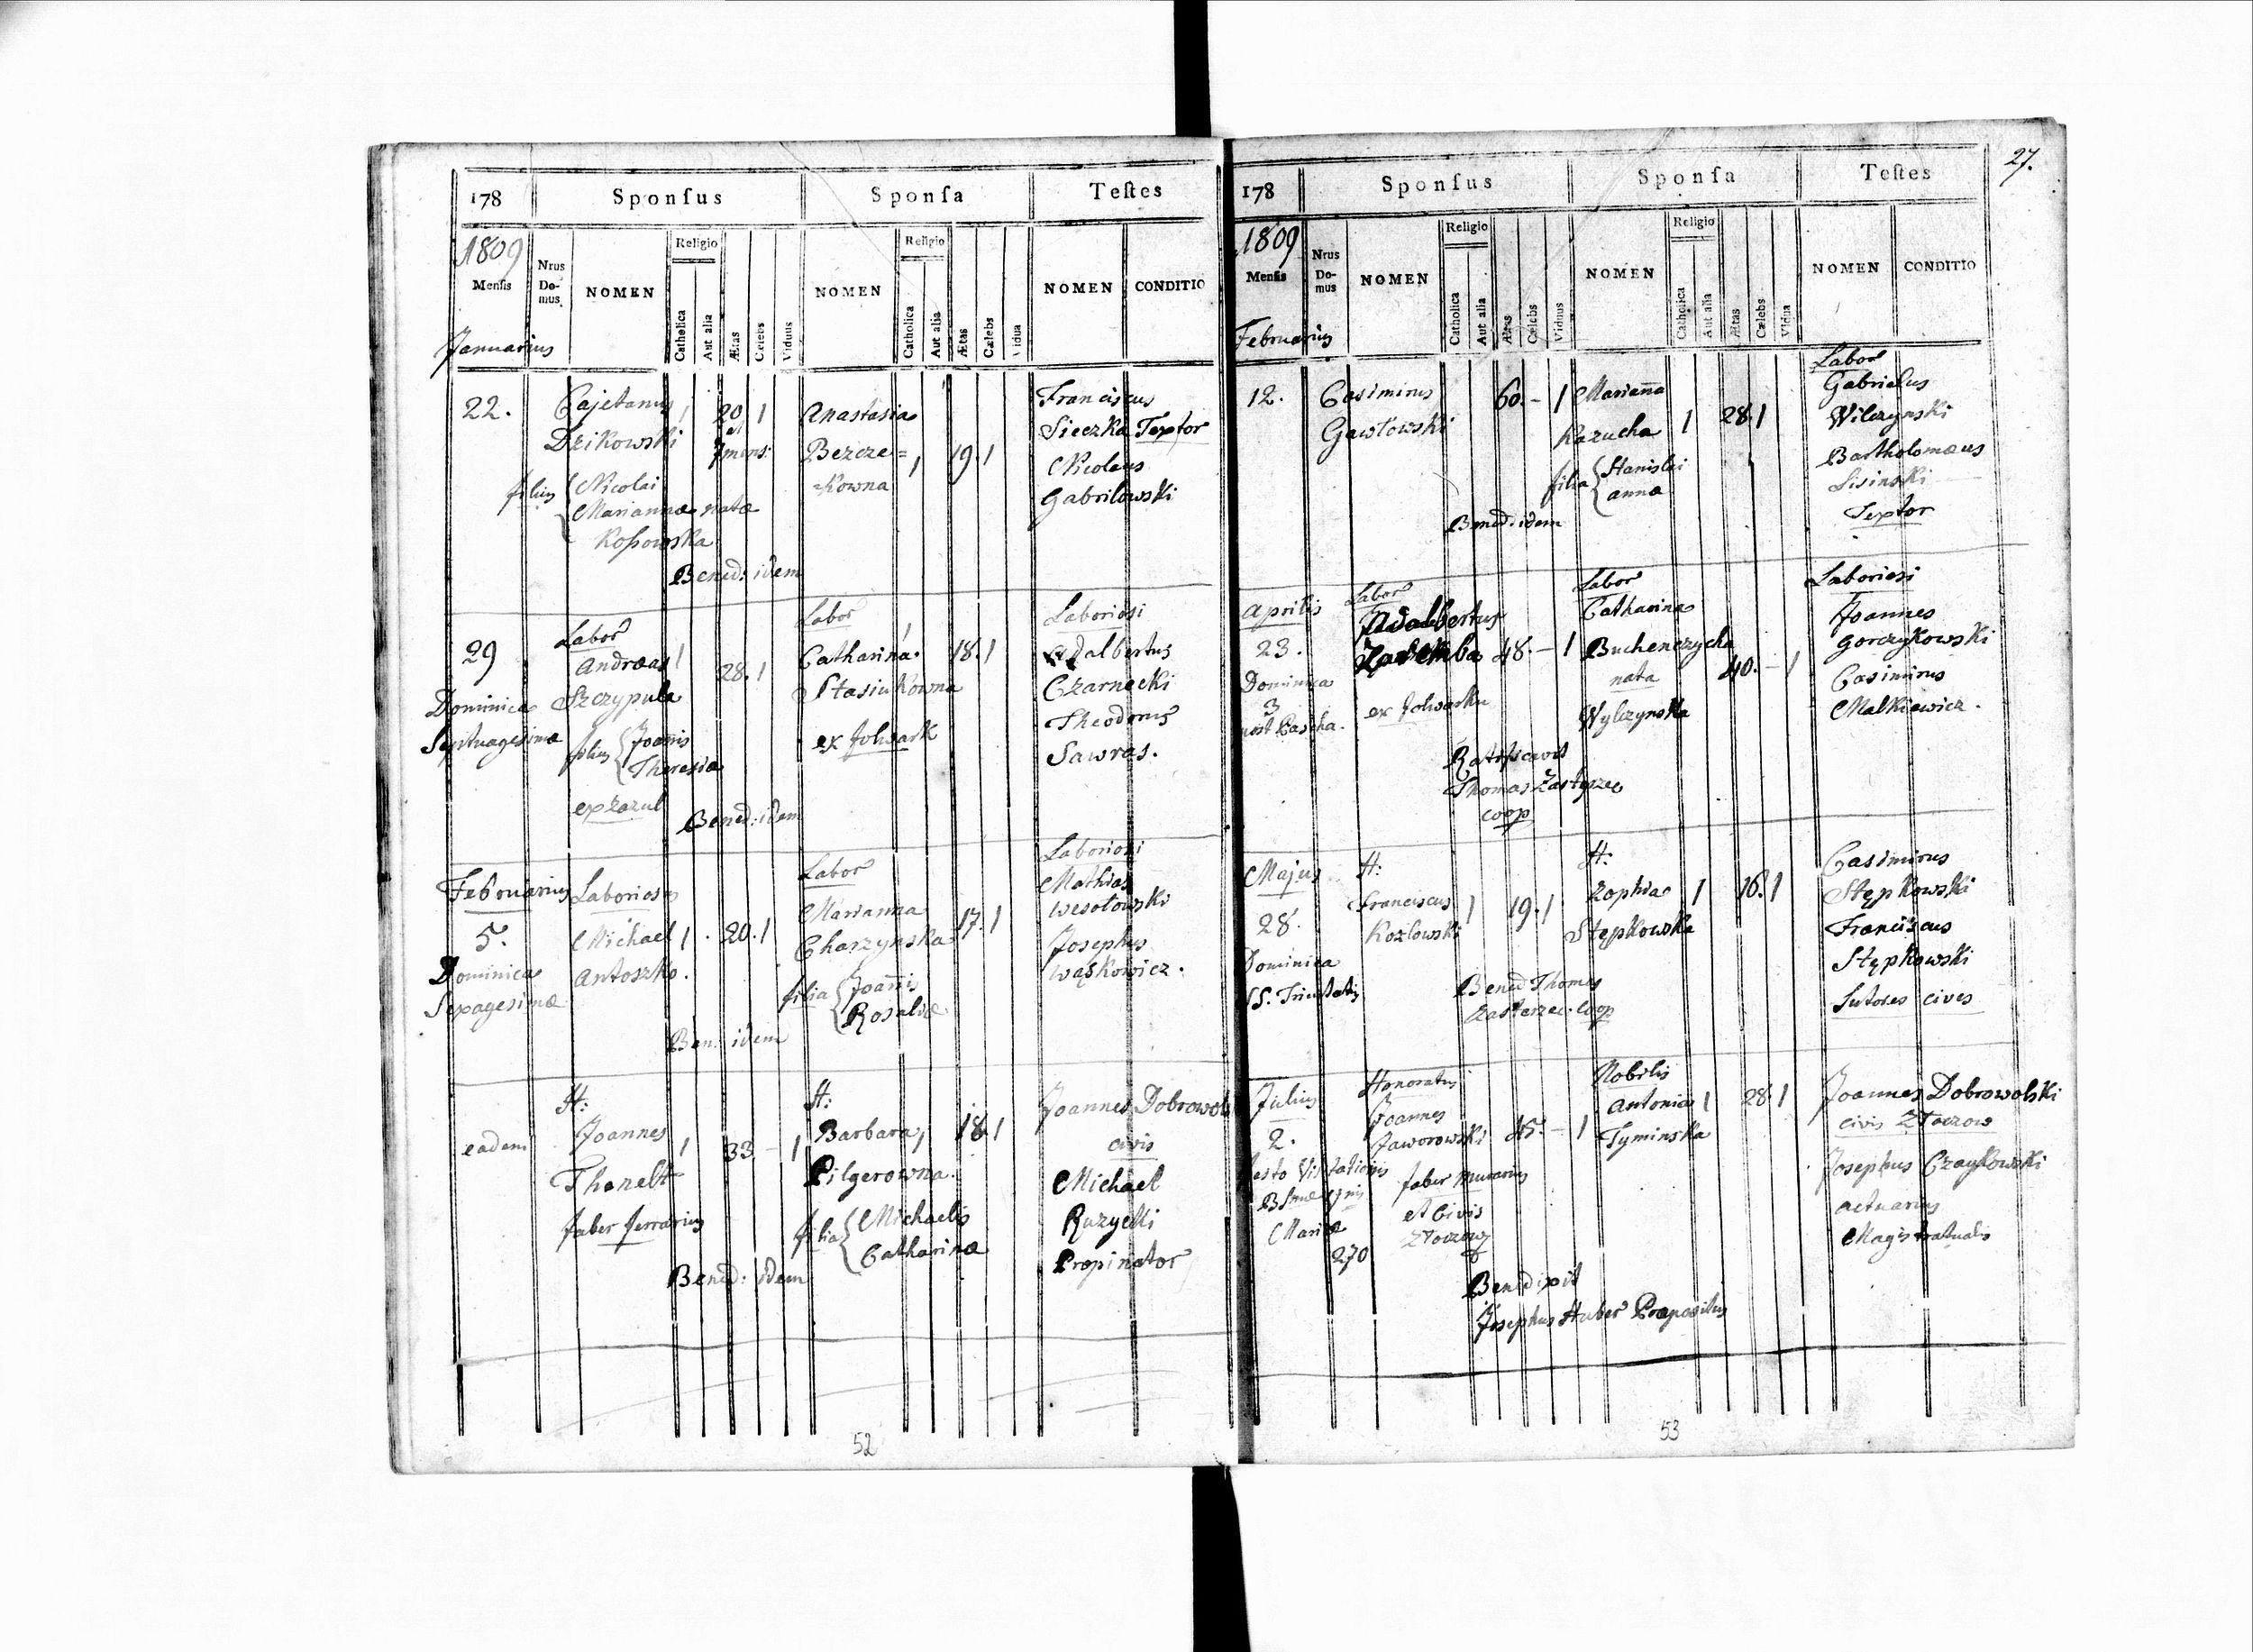 178
Sponſus
Sponſa
Teſtes
1809
Menſis
Januarius
Nrus
Do-
mus
NOMEN
Religio
Catholica
Aut alia
Ætas
Cœlebs
Viduus
NOMEN
Religio
Catholica
Aut alia
Ætas
Cælebs
Vidua
NOMEN
CONDITIO
22.
Cajetanus
Dzikowski
filius
Nicolai
Mariannæ natæ
Koſsowska
1
20
et
7 mens:
1
Anastasia
Bezcze=
=kowna
1
19.
1
Franciscus
Sieczka Textor
Nicolaus
Gabrilowski
Bened: idem
29
Dominica
Septuagesimæ
Labor
Andreas
Szczypula
filius
Joānis
Theresiæ
ex Zazul
1
28.
1
Labor
Catharina
Stasiukowna
ex folwark
1
18.
1
Laboriosi
Adalbertus
Czarnecki
Theodorus
Sawras.
Bened: idem
Februarius
5.
Dominica
Sexagesimæ
Laboriosus
Michael
Antoszko.
1
20.
1
Labor
Marianna
Charzynska
filia
Joañis
Rosaliæ
17.
1
Laboriosi
Mathias
Wesołowski
Josephus
Wąskowicz.
Ben: idem
eadem
H:
Joannes
Thanelt
faber ferrarius
1
33
-
1
H:
Barbara
Pilgerowna.
filia
Michaelis
Catharinæ
1
18.
1
Joannes Dobrowol
civis
Michael
Ruzycki
Propinator
Bened: idem
52
27.
178
Sponſus
Sponſa
Teſtes
1809
Menſis
Februarius
Nrus
Do-
mus
NOMEN
Religio
Catholica
Aut alia
Ætas
Cælebs
Viduus
NOMEN
Religio
Catholica
Aut alia
Ætas
Cælebs
Vidua
NOMEN
CONDITIO
12.
Casimirus
Gawłowski
60.
-
1
Mariañna
Kazucha
filia
Stanislai
Annæ
1
28.
1
Labor
Gabrielus
Wilczynski
Bartholomæus
Lisinski
Textor
Bened: idem
Aprilis
23.
Dominica
3
post Pascha.
Labor
Adalbertus
Zaremba
ex folwarku
48.
-
1
Labor
Catharina
Buchenczycha
nata
Wylczynska
40.
-
1
Laboriosi
Joannes
Gorczykowski
Casimirus
Malkiewicz.
Ratificavit
Thomas Zastyrzec
coop
Majus
28.
Dominica
SS. Trinitatis
H:
Franciscus
Kozlowski
1
19.
1
H:
Zophia
Stępkowska
1
16.
1
Casimirus
Stępkowski
Franciscus
Stępkowski
Sutores cives
Bened Thomas
Zasterzec coop
Julius
2.
festo Visitationis
Btmæ Vginis
Mariæ
270
Honoratus
Joannes
Jaworowski
faber murarius
et Civis
Złoczow
45.
-
1
Nobilis
Antonia
Tyminska
1
28.
1
Joannes Dobrowolski
civis Złoczow
Josephus Czaykowski
actuarius
Magistratualis
Benedixit
Josephus Huber Præpositus
53